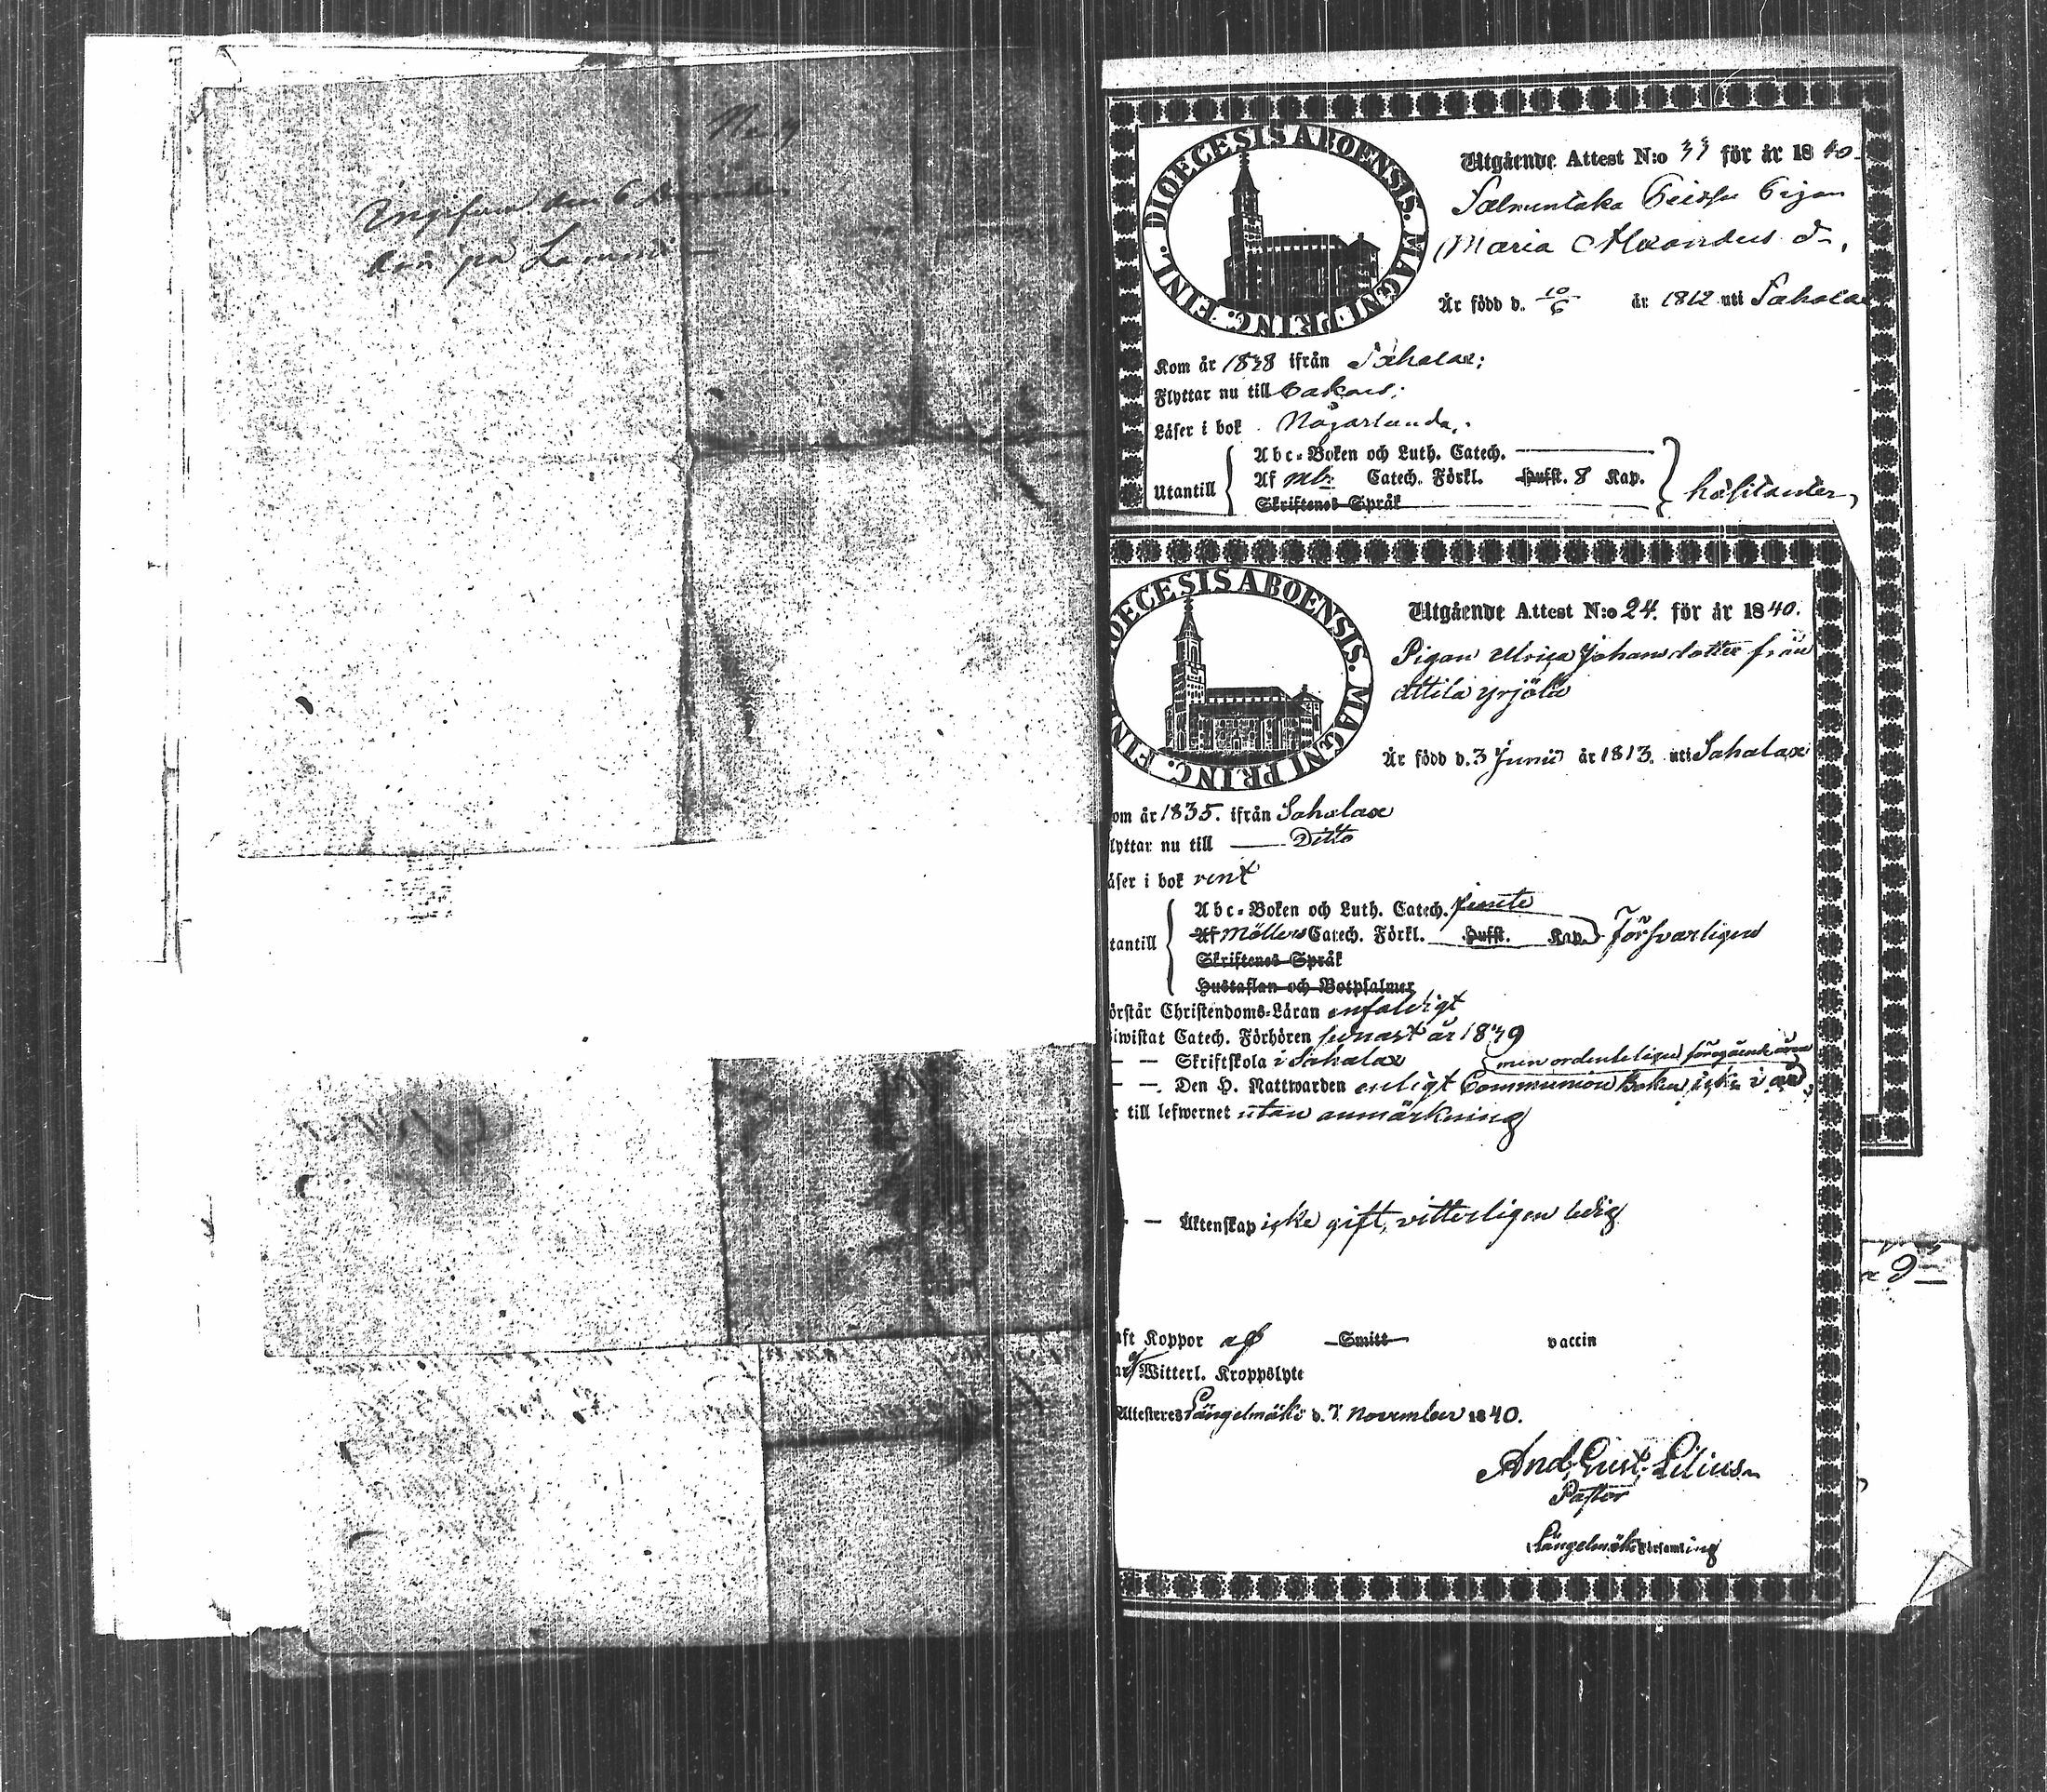 No 9
den 6
DIOECESIS ABOENSIS. MAGNI PRINC. FINL.
Utgående Attest N:o 33 för år 1840.
Maria
Är född d. 10/6 år 1812 uti Sahalax
Kom år 1838 ifrån Sahalax;
Flyttar nu till
Läser i bok
Abc-Boken och Luth. Catech.
Utantill
Af Catech. Förkl. Hufst. 8 Kap.
Skriftenes Språk
DIOECESIS ABOENSIS. MAGNI PRINC. FIN
Utgående Attest N:o 24. för år 1840.
Pigan Ulrica Johansdotter från
Attila Yrjölä
Är född d. 3 Junii år 1813. uti Sahalax
om år 1835. ifrån Sahalax
lyttar nu till Ditto
äser i bok rent
Abc-Boken och Luth. Catech.
tantill
Af Möllers Catech. Förkl. Hufst. Kap. Försvarligen
Skriftenes Språk
Hustaflan och Botpsalmer
örstår Christendoms-Läran enfaldigt
iwistat Catech. Förhören senast år 1839
— — Skriftskola i Sahalax
men ordenteligen föregående åren
— —. Den H. Nattwarden enligt Communion Boken icke i år,
r till lefwernet utan anmärkning
— Äktenskap icke gift, vitterligen ledig
aft Koppor af Smitt vaccin
Witterl. Kroppslyte
Attesteres Längelmäki d. 7. November 1840.
And. Gust. Lilius
Pastor
Längelmäki Församling
9